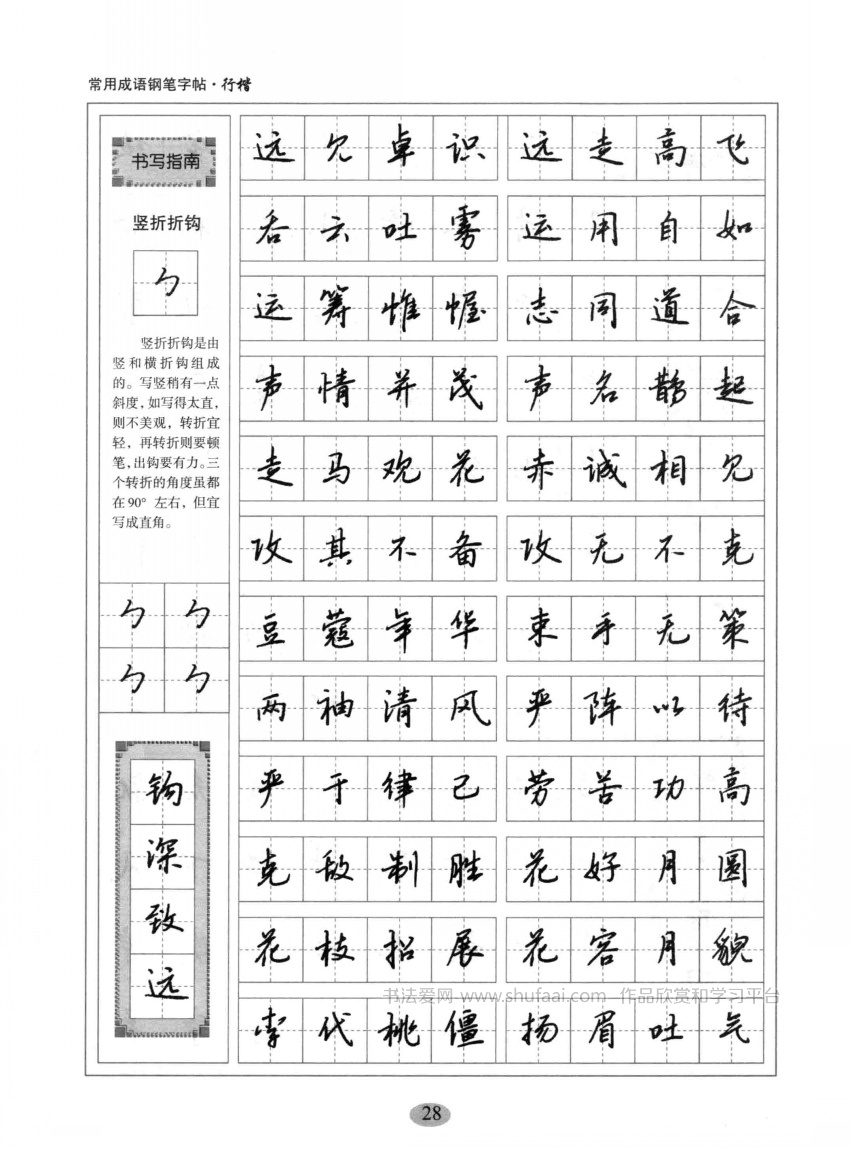 常用成语钢笔字帖·行楷
书写指南
竖折折钩
竖折折钩是由
竖和横折钩组成
的。写竖稍有一点
斜度，如写得太直，
则不美观，转折宜
轻，再转折则要顿
笔，出钩要有力。三
个转折的角度虽都
在90°左右，但宜
写成直角。
钩深致远
远见卓识 远走高飞
吞云吐雾 运用自如
运筹帷幄 志同道合
声情并茂 声名鹊起
走马观花 赤诚相见
攻其不备 攻无不克
豆蔻年华 束手无策
两袖清风 严阵以待
严于律己 劳苦功高
克敌制胜 花好月圆
花枝招展 花容月貌
书法爱网 www.shufaai.com 作品欣赏和学习平台
李代桃僵 扬眉吐气
28